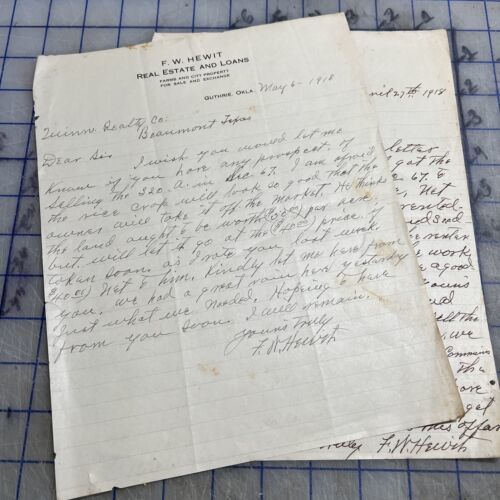 F. W. HEWIT
REAL ESTATE AND LOANS
FARMS AND CITY PROPERTY
FOR SALE AND EXCHANGE
GUTHRIE, OKLA. May 6 - 1918
Quinn Realty Co:
Beaumont Texas
Dear Sir I wish you would let me
Know if you have any prospect of
Selling the 320. A. in Sec 67. I am afraid
the rice crop will look so good that the
owner will take it off the market. He thinks
the land ought to be worth $50.00 per acre
but will let it go at the $40.00 price, if
taken soon. as I wrote you last week
$40.00 Net to him. Kindly let me hear from
you. we had a great rain here yesterday
Just what we needed. Hoping to have
from you soon. I will remain.
Yours truly
F. W. Hewit
April 27th 1918
letter
got the
67. &
Net
rented.
renter
work
a good
yours
sell the
we
get
this offer
F. W. Hewit